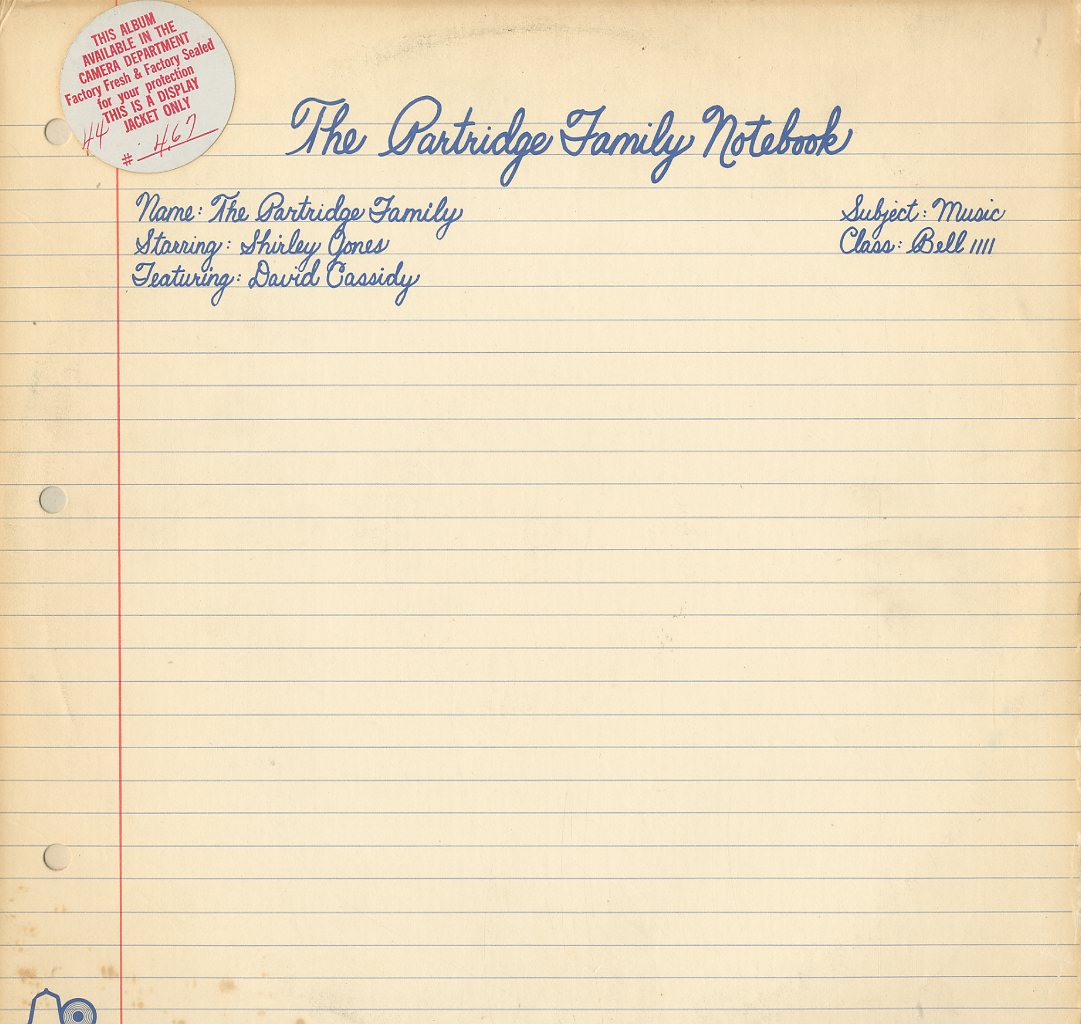 THIS ALBUM
AVAILABLE IN THE
CAMERA DEPARTMENT
Factory Fresh & Factory Sealed
for your protection
THIS IS A DISPLAY
JACKET ONLY
# 467
The Partridge Family Notebook
Name: The Partridge Family
Subject: Music
Starring: Shirley Jones
Class: Bell 1111
Featuring: David Cassidy